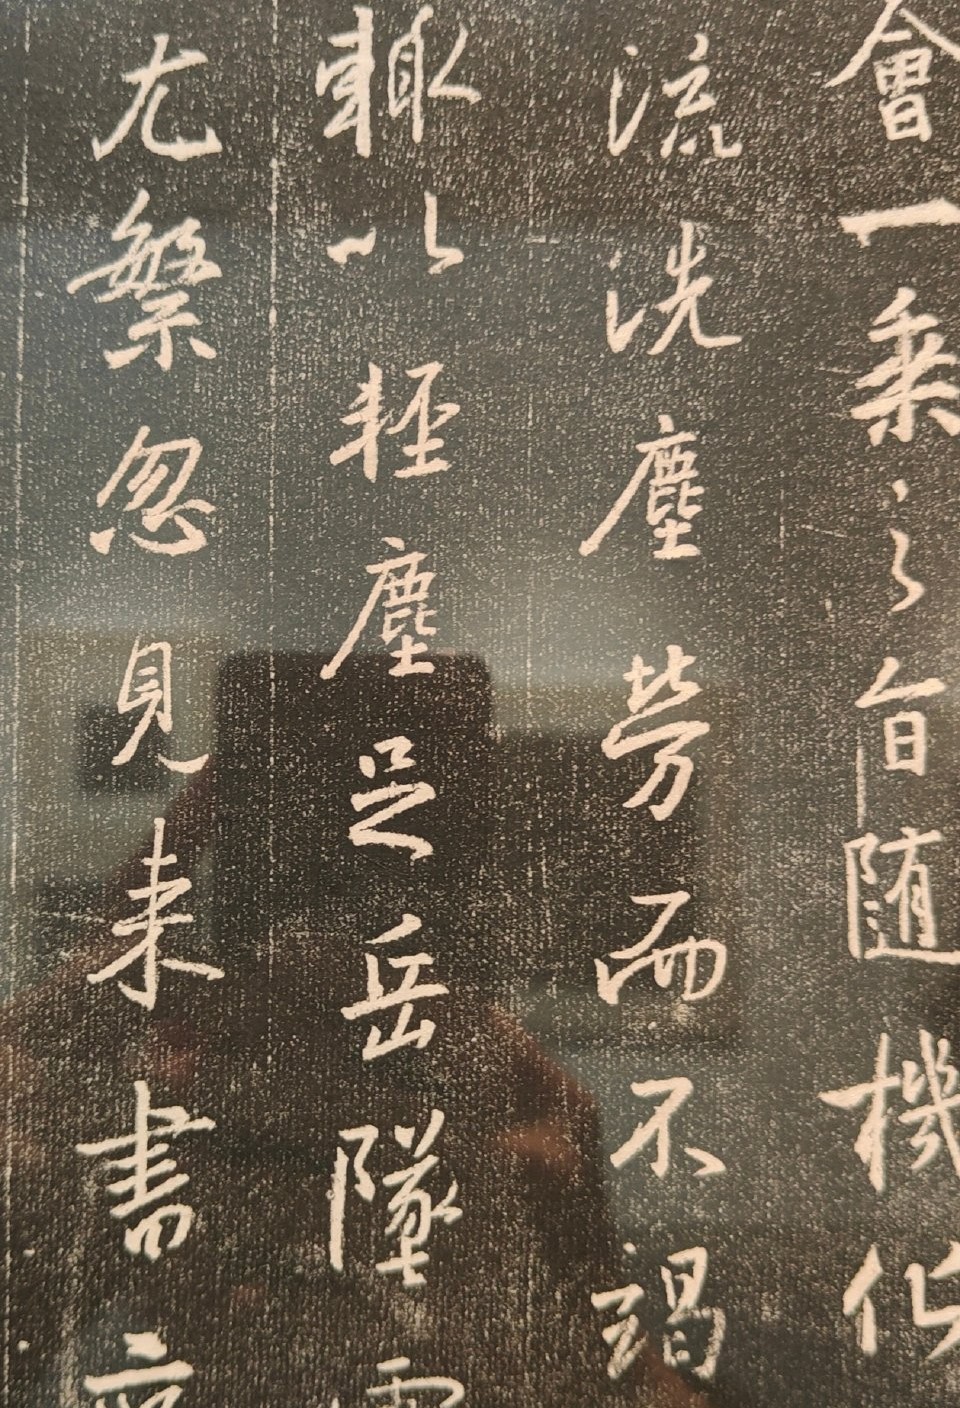 會一乘之旨随機化
流洗塵勞而不竭
輙以輕塵足岳墜露
尤繁忽見来書